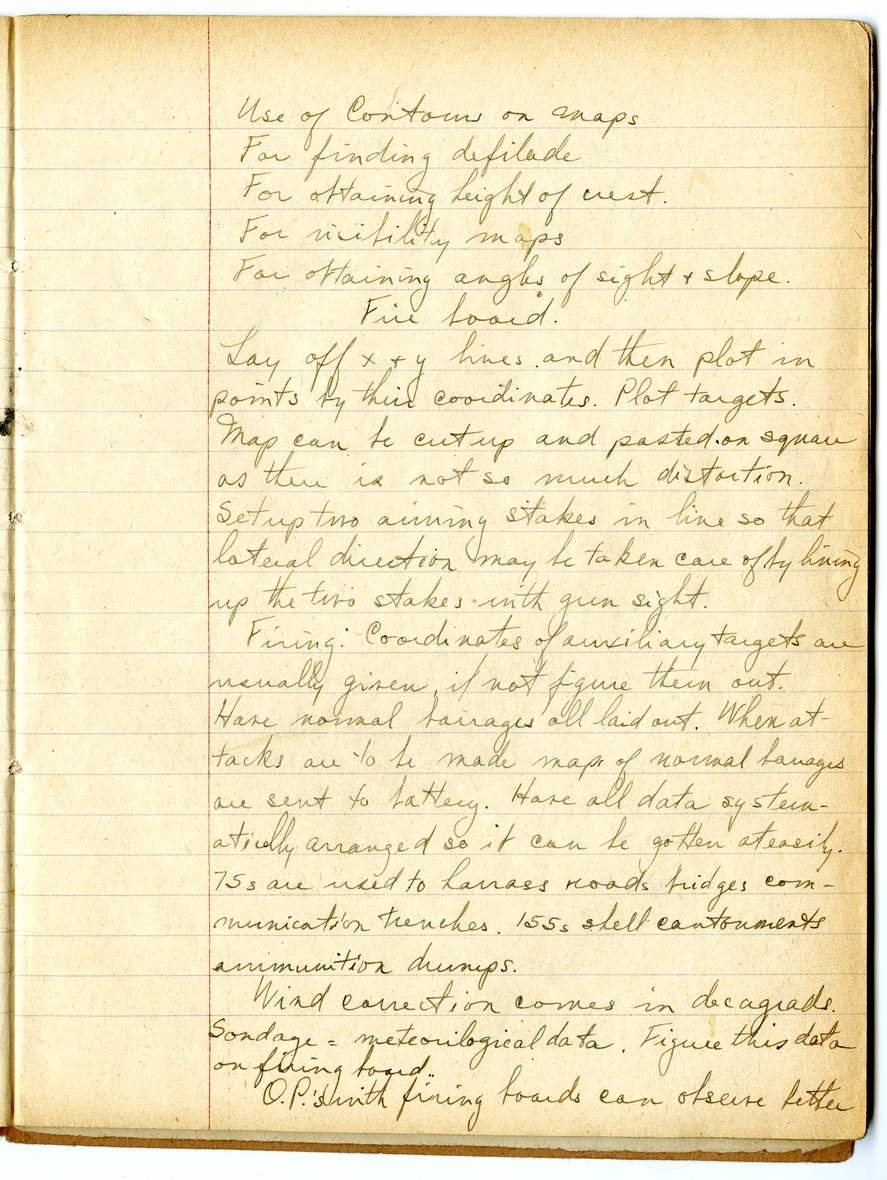 Use of Contours on maps
For finding defilade
For obtaining height of crest.
For visibility maps
For obtaining angles of sight + slope.
Fire board.
Lay off x + y lines and then plot in
points by their coordinates. Plot targets.
Map can be cut up and pasted on square
as there is not so much distortion.
Set up two aiming stakes in line so that
lateral direction may be taken care of by lining
up the two stakes with gun sight.
Firing: Coordinates of auxiliary targets are
usually given, if not figure them out.
Have normal barrages all laid out. When at-
tacks are to be made maps of normal barrages
are sent to battery. Have all data system-
atically arranged so it can be gotten at easily.
75s are used to harrass roads bridges com-
munication trenches. 155s shell cantonments
ammunition dumps.
Wind correction comes in decagrads.
Sondage = meteorilogical data. Figure this data
on firing board.
O.P.'s with firing boards can observe better